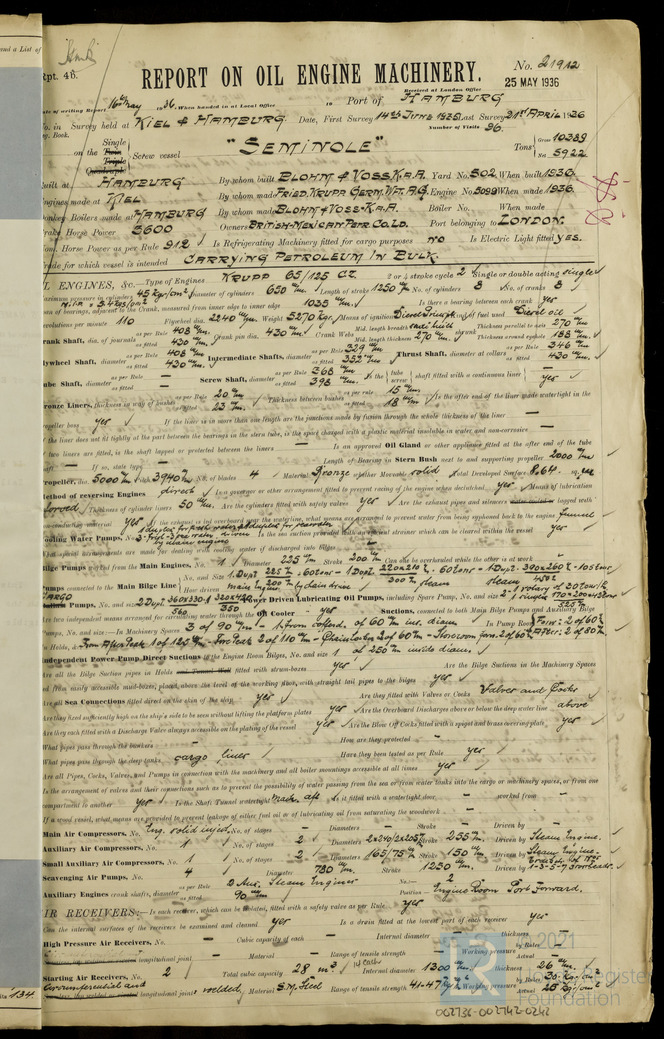 and a List of
Rpt. 4b.
REPORT ON OIL ENGINE MACHINERY.
No. 21912
Received at London Office
25 MAY 1936
Date of writing Report 16th May 1936. When handed in at Local Office 19 Port of HAMBURG
No. in Survey held at KIEL & HAMBURG. Date, First Survey 14th JUNE 1935 Last Survey 21st APRIL 1936
Reg. Book. Number of Visits 96.
on the Single Twin Triple Quadruple Screw vessel "SEMINOLE" Tons Gross 10389 Net 5922
Built at HAMBURG By whom built BLOHM & VOSS K.a.A. Yard No. 502 When built 1936.
Engines made at KIEL By whom made FRIED. KRUPP GERM. WFT. A.G. Engine No. 5099 When made 1936.
Donkey Boilers made at HAMBURG By whom made BLOHM & VOSS K.a.A. Boiler No. When made
Brake Horse Power 3600 Owners BRITISH-MEXICAN PETR. CO. LD. Port belonging to LONDON.
Nom. Horse Power as per Rule 912 Is Refrigerating Machinery fitted for cargo purposes NO Is Electric Light fitted YES.
Trade for which vessel is intended CARRYING PETROLEUM IN BULK.
OIL ENGINES, &c.—Type of Engines KRUPP 65/125 2 or 4 stroke cycle 2 Single or double acting single
Maximum pressure in cylinders 45 kgs/cm² Diameter of cylinders 650 m/m. Length of stroke 1250 m/m No. of cylinders 8 No. of cranks 8
Span of bearings, adjacent to the Crank, measured from inner edge to inner edge 1035 m/m. Is there a bearing between each crank yes
Revolutions per minute 110 Flywheel dia. 2240 m/m. Weight 5270 kgs. Means of ignition Kind of fuel used Diesel oil
Crank Shaft, dia. of journals as per Rule 408 m/m. as fitted 430 m/m. Crank pin dia. 430 m/m. Crank Webs Mid. length breadth Mid. length thickness 270 m/m. Thickness parallel to axis 270 m/m Thickness around eyehole 188 m/m.
Flywheel Shaft, diameter as per Rule 408 m/m. as fitted 430 m/m. Intermediate Shafts, diameter as per Rule 329 m/m as fitted 352 m/m. Thrust Shaft, diameter at collars as per Rule 346 m/m. as fitted 430 m/m.
Tube Shaft, diameter as per Rule — as fitted — Screw Shaft, diameter as per Rule 368 m/m as fitted 398 m/m. Is the tube screw shaft fitted with a continuous liner yes
Bronze Liners, thickness in way of bushes as per Rule 20 m/m as fitted 23 m/m. Thickness between bushes as per rule 15 m/m as fitted 18 m/m Is the after end of the liner made watertight in the
propeller boss yes If the liner is in more than one length are the junctions made by fusion through the whole thickness of the liner —
If the liner does not fit tightly at the part between the bearings in the stern tube, is the space charged with a plastic material insoluble in water and non-corrosive —
If two liners are fitted, is the shaft lapped or protected between the liners — Is an approved Oil Gland or other appliance fitted at the after end of the tube
shaft — If so, state type — Length of Bearing in Stern Bush next to and supporting propeller 2000 m/m
Propeller, dia. 5000 m/m Pitch 3940 m/m No. of blades 4 Material Bronze whether Moveable solid Total Developed Surface 8.64 sq.
Method of reversing Engines direct Is a governor or other arrangement fitted to prevent racing of the engine when declutched yes Means of lubrication
forced Thickness of cylinder liners 50 m/m. Are the cylinders fitted with safety valves yes Are the exhaust pipes and silencers water cooled or lagged with
non-conducting material yes If the exhaust is led overboard near the waterline, what means are arranged to prevent water being syphoned back to the engine funnel
Cooling Water Pumps, No.
What special arrangements are made for dealing with cooling water if discharged into bilges —
Bilge Pumps worked from the Main Engines, No. 1 Diameter 225 m/m Stroke 200 m/m Can one be overhauled while the other is at work —
Pumps connected to the Main Bilge Line No. and Size How driven main engine by chain drive steam steam
Lubricating Oil Pumps, including Spare Pump, No. and size
Are two independent means arranged for circulating water through the Oil Cooler yes Suctions, connected to both Main Bilge Pumps and Auxiliary Bilge
Pumps, No. and size:—In Machinery Spaces 3 of 90 m/m — 1 from cofferd. of 60 m/m. ins. diam In Pump Room Forw: 2 of 60 After: 2 of 80
In Holds, &c.
Independent Power Pump Direct Suctions to the Engine Room Bilges, No. and size 1 of 250 m/m inside diam.
Are all the Bilge Suction pipes in Holds and Tunnel Well fitted with strum-boxes yes Are the Bilge Suctions in the Machinery Spaces
led from easily accessible mud-boxes, placed above the level of the working floor, with straight tail pipes to the bilges yes
Are all Sea Connections fitted direct on the skin of the ship yes Are they fitted with Valves or Cocks Valves and Cocks
Are they fixed sufficiently high on the ship's side to be seen without lifting the platform plates yes Are the Overboard Discharges above or below the deep water line above
Are they each fitted with a Discharge Valve always accessible on the plating of the vessel yes Are the Blow Off Cocks fitted with a spigot and brass covering plate yes
What pipes pass through the bunkers — How are they protected —
What pipes pass through the deep tanks cargo lines Have they been tested as per Rule yes
Are all Pipes, Cocks, Valves, and Pumps in connection with the machinery and all boiler mountings accessible at all times yes
Is the arrangement of valves and their connections such as to prevent the possibility of water passing from the sea or from water tanks into the cargo or machinery spaces, or from one
compartment to another yes Is the Shaft Tunnel watertight Mach. aft Is it fitted with a watertight door — worked from —
If a wood vessel, what means are provided to prevent leakage of either fuel oil or of lubricating oil from saturating the woodwork —
Main Air Compressors, No. Eng. solid inject. No. of stages — Diameters — Stroke — Driven by —
Auxiliary Air Compressors, No. 1 No. of stages 2 Diameters 2x240/2x205 m/m Stroke 255 m/m. Driven by Steam Engine.
Small Auxiliary Air Compressors, No. 1 No. of stages 2 Diameters 165/75 m/m Stroke 150 m/m Driven by Steam Engine.
Scavenging Air Pumps, No. 4 Diameter 780 m/m. Stroke 1250 m/m. Driven by
Auxiliary Engines crank shafts, diameter as per Rule 2 Aux. Steam Engines as fitted 90 m/m No. 2 Position Engine Room Port Forward.
AIR RECEIVERS:—Is each receiver, which can be isolated, fitted with a safety valve as per Rule. yes
Can the internal surfaces of the receivers be examined and cleaned yes Is a drain fitted at the lowest part of each receiver yes
High Pressure Air Receivers, No. — Cubic capacity of each — Internal diameter — thickness —
longitudinal joint — Material — Range of tensile strength — Working pressure by Rules — Actual —
Starting Air Receivers, No. 2 Total cubic capacity 28 m³ 14 each Internal diameter 1300 m/m. thickness 26 m/m.
circumferential and longitudinal joint welded, Material S.M. Steel Range of tensile strength 41-47 kg Working pressure by Rules Actual 25 kg/cm²
134.
© 2021
Lloyd's Register
Foundation
002736-002742-0242